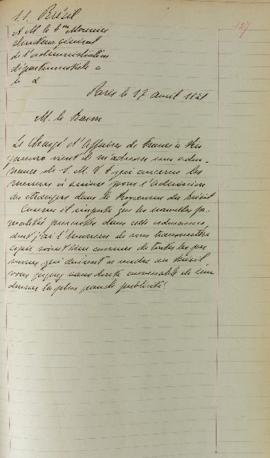 Brésil
A M. le Bon Mounier
directeur général
de l'administration
départementale
Paris le 17 avril 1821
M. le Baron
Le Chargé d'Affaires de France à Rio
Janeiro vient de m'adresser une ordon-
nance de S. M. T. F. qui concerne les
mesures à suivre pour l'admission
des étrangers dans le Royaume du Brésil
Comme il importe que les nouvelles for-
malités prescrites dans cette ordonnance,
dont j'ai l'honneur de vous transmettre
copie soient bien connues de toutes les per-
sonnes qui doivent se rendre au Brésil,
vous jugerez sans doute convenable de leur
donner la plus grande publicité.